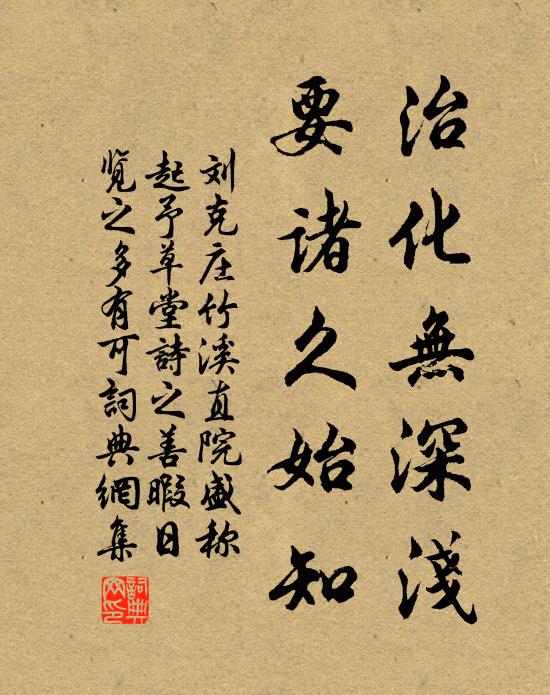 治化無深淺
要諸久始知
刘克庄竹溪直院盛称
起予草堂詩之善暇日
览之多有可詞典網集
詞典网印